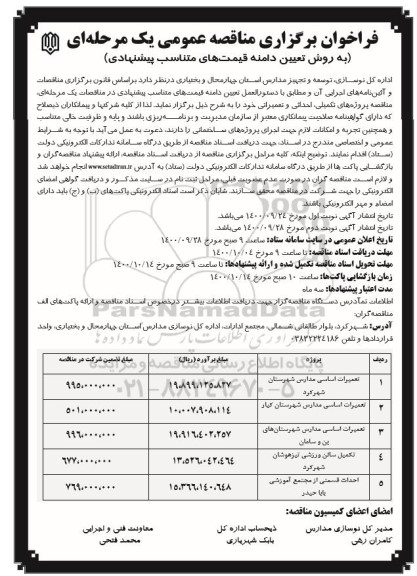 فراخوان برگزاری مناقصه عمومی یک مرحله‌ای
(به روش تعیین دامنه قیمت‌های متناسب پیشنهادی)
اداره کل نوسازی، توسعه و تجهیز مدارس استان چهارمحال و بختیاری در نظر دارد براساس قانون برگزاری مناقصات
و آئین‌نامه‌های اجرایی آن و مطابق با دستورالعمل تعیین دامنه قیمت‌های متناسب پیشنهادی در مناقصات یک مرحله‌ای،
مناقصه پروژه‌های تکمیلی، احداثی و تعمیراتی خود را به شرح ذیل برگزار نماید. لذا از کلیه شرکتها و پیمانکاران ذیصلاح
که دارای گواهینامه صلاحیت پیمانکاری معتبر از سازمان مدیریت و برنامه‌ریزی باشند و پایه و ظرفیت خالی متناسب
و همچنین تجربه و امکانات لازم جهت اجرای پروژه‌های ساختمانی را دارند، دعوت به عمل می آید با توجه به شرایط
عمومی و اختصاصی مندرج در اسناد، جهت دریافت اسناد مناقصه از طریق درگاه سامانه تدارکات الکترونیکی دولت
(ستاد) اقدام نمایند. توضیح اینکه، کلیه مراحل برگزاری مناقصه از دریافت اسناد مناقصه، ارائه پیشنهاد مناقصه‌گران و
بازگشایی پاکت ها از طریق درگاه سامانه تدارکات الکترونیکی دولت (ستاد) به آدرس www.setadiran.ir انجام خواهد شد
و لازم است مناقصه گران در صورت عدم عضویت قبلی، مراحل ثبت نام در سایت مذکور و دریافت گواهی امضای
الکترونیکی را جهت شرکت در مناقصه محقق سازند. شایان ذکر است اسناد الکترونیکی پاکت‌های (ب) و (ج) باید دارای
امضاء و مهر الکترونیکی باشند.
تاریخ انتشار آگهی نوبت اول مورخ ۱۴۰۰/۰۹/۲۴ می‌باشد.
تاریخ انتشار آگهی نوبت دوم مورخ ۱۴۰۰/۰۹/۲۸ می‌باشد.
تاریخ اعلان عمومی در سایت سامانه ستاد: ساعت ۹ صبح مورخ ۱۴۰۰/۰۹/۲۸
مهلت دریافت اسناد مناقصه: تا ساعت ۹ صبح مورخ ۱۴۰۰/۱۰/۰۴
مهلت تحویل اسناد مناقصه تکمیل شده و ارائه پیشنهادها: تا ساعت ۹ صبح مورخ ۱۴۰۰/۱۰/۱۴
زمان بازگشایی پاکت‌ها: ساعت ۱۰ صبح مورخ ۱۴۰۰/۱۰/۱۴
مدت اعتبار پیشنهادها: سه ماه
اطلاعات تماس دستگاه مناقصه‌گزار جهت دریافت اطلاعات بیشتر در خصوص اسناد مناقصه و ارائه پاکت‌های الف
مناقصه‌گران:
آدرس: شهرکرد، بلوار طالقانی شمالی، مجتمع ادارات، اداره کل نوسازی مدارس استان چهارمحال و بختیاری، واحد
قراردادها و تلفن ۰۳۸۳۲۲۲۴۱۸۶
ردیف پروژه مبلغ برآورد (ریال) مبلغ تضمین شرکت در مناقصه
۱ تعمیرات اساسی مدارس شهرستان شهرکرد ۱۹،۸۹۹،۱۲۵،۸۲۷ ۹۹۵،۰۰۰،۰۰۰
۲ تعمیرات اساسی مدارس شهرستان کیار ۱۰،۰۰۷،۹۰۸،۱۱۴ ۵۰۱،۰۰۰،۰۰۰
۳ تعمیرات اساسی مدارس شهرستان‌های بن و سامان ۱۹،۹۱۶،۴۰۲،۲۵۷ ۹۹۶،۰۰۰،۰۰۰
۴ تکمیل سالن ورزشی تیزهوشان شهرکرد ۱۳،۵۲۶،۰۴۲،۴۶۴ ۶۷۷،۰۰۰،۰۰۰
۵ احداث قسمتی از مجتمع آموزشی بابا حیدر ۱۵،۳۶۶،۱۴۰،۶۴۸ ۷۶۹،۰۰۰،۰۰۰
امضای اعضای کمیسیون مناقصه:
مدیر کل نوسازی مدارس ذیحساب اداره کل معاونت فنی و اجرایی
کامران رشی بابک شهریاری محمد فتحی